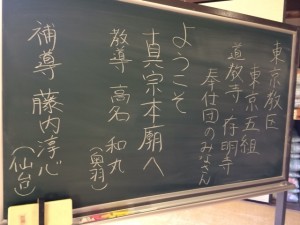 東京教区
東京五組
道教寺・存明寺
奉仕団のみなさん
ようこそ
真宗本廟へ
教導 高名 和丸
(奥羽)
補導 藤内淳心
(仙台)